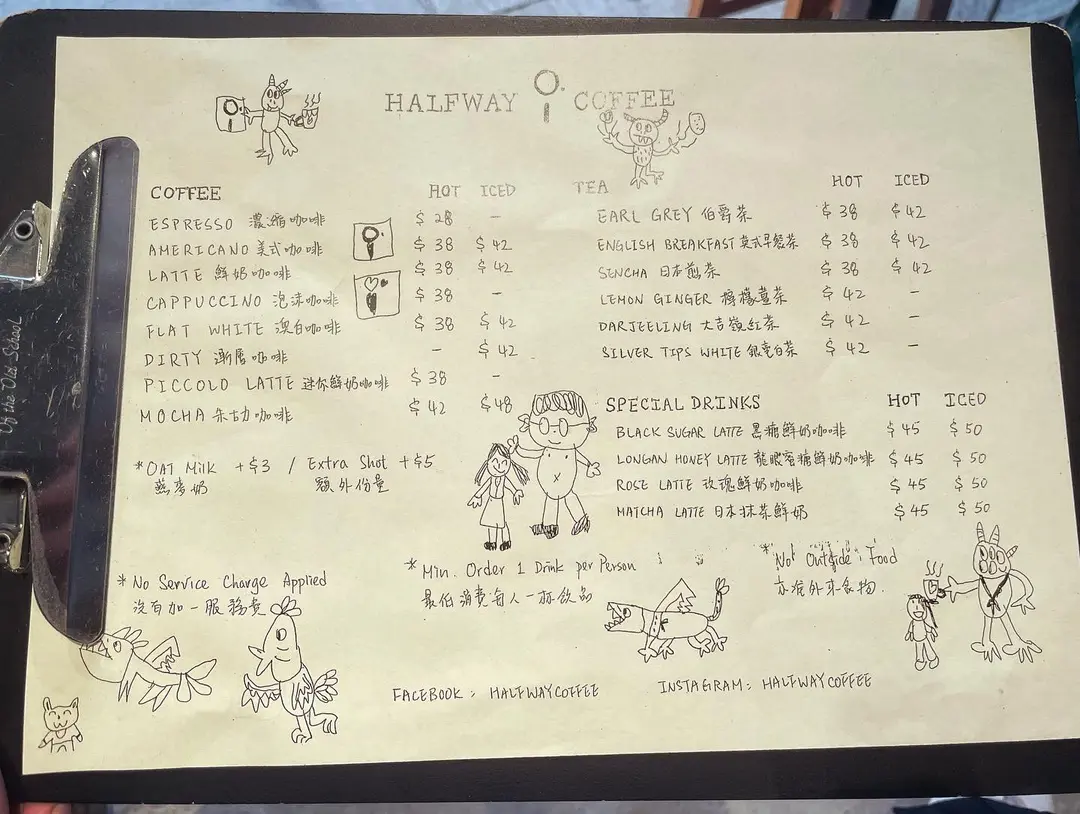 HALFWAY COFFEE
COFFEE HOT ICED
ESPRESSO 濃縮咖啡 $28 –
AMERICANO 美式咖啡 $38 $42
LATTE 鮮奶咖啡 $38 $42
CAPPUCCINO 泡沫咖啡 $38 –
FLAT WHITE 澳白咖啡 $38 $42
DIRTY 漸層咖啡 – $42
PICCOLO LATTE 迷你鮮奶咖啡 $38 –
MOCHA 朱古力咖啡 $42 $48
*OAT Milk +$3 / Extra Shot +$5
燕麥奶 額外份量
TEA HOT ICED
EARL GREY 伯爵茶 $38 $42
ENGLISH BREAKFAST 英式早餐茶 $38 $42
SENCHA 日本煎茶 $38 $42
LEMON GINGER 檸檬薑茶 $42 –
DARJEELING 大吉嶺紅茶 $42 –
SILVER TIPS WHITE 銀毫白茶 $42 –
SPECIAL DRINKS HOT ICED
BLACK SUGAR LATTE 黑糖鮮奶咖啡 $45 $50
LONGAN HONEY LATTE 龍眼蜜糖鮮奶咖啡 $45 $50
ROSE LATTE 玫瑰鮮奶咖啡 $45 $50
MATCHA LATTE 日本抹茶鮮奶 $45 $50
*No Service Charge Applied
沒有加一服務費
*Min. Order 1 Drink per Person
最低消費每人一杯飲品
*Not Outside Food
亦准外來食物.
FACEBOOK: HALFWAYCOFFEE
INSTAGRAM: HALFWAYCOFFEE
of the Old School